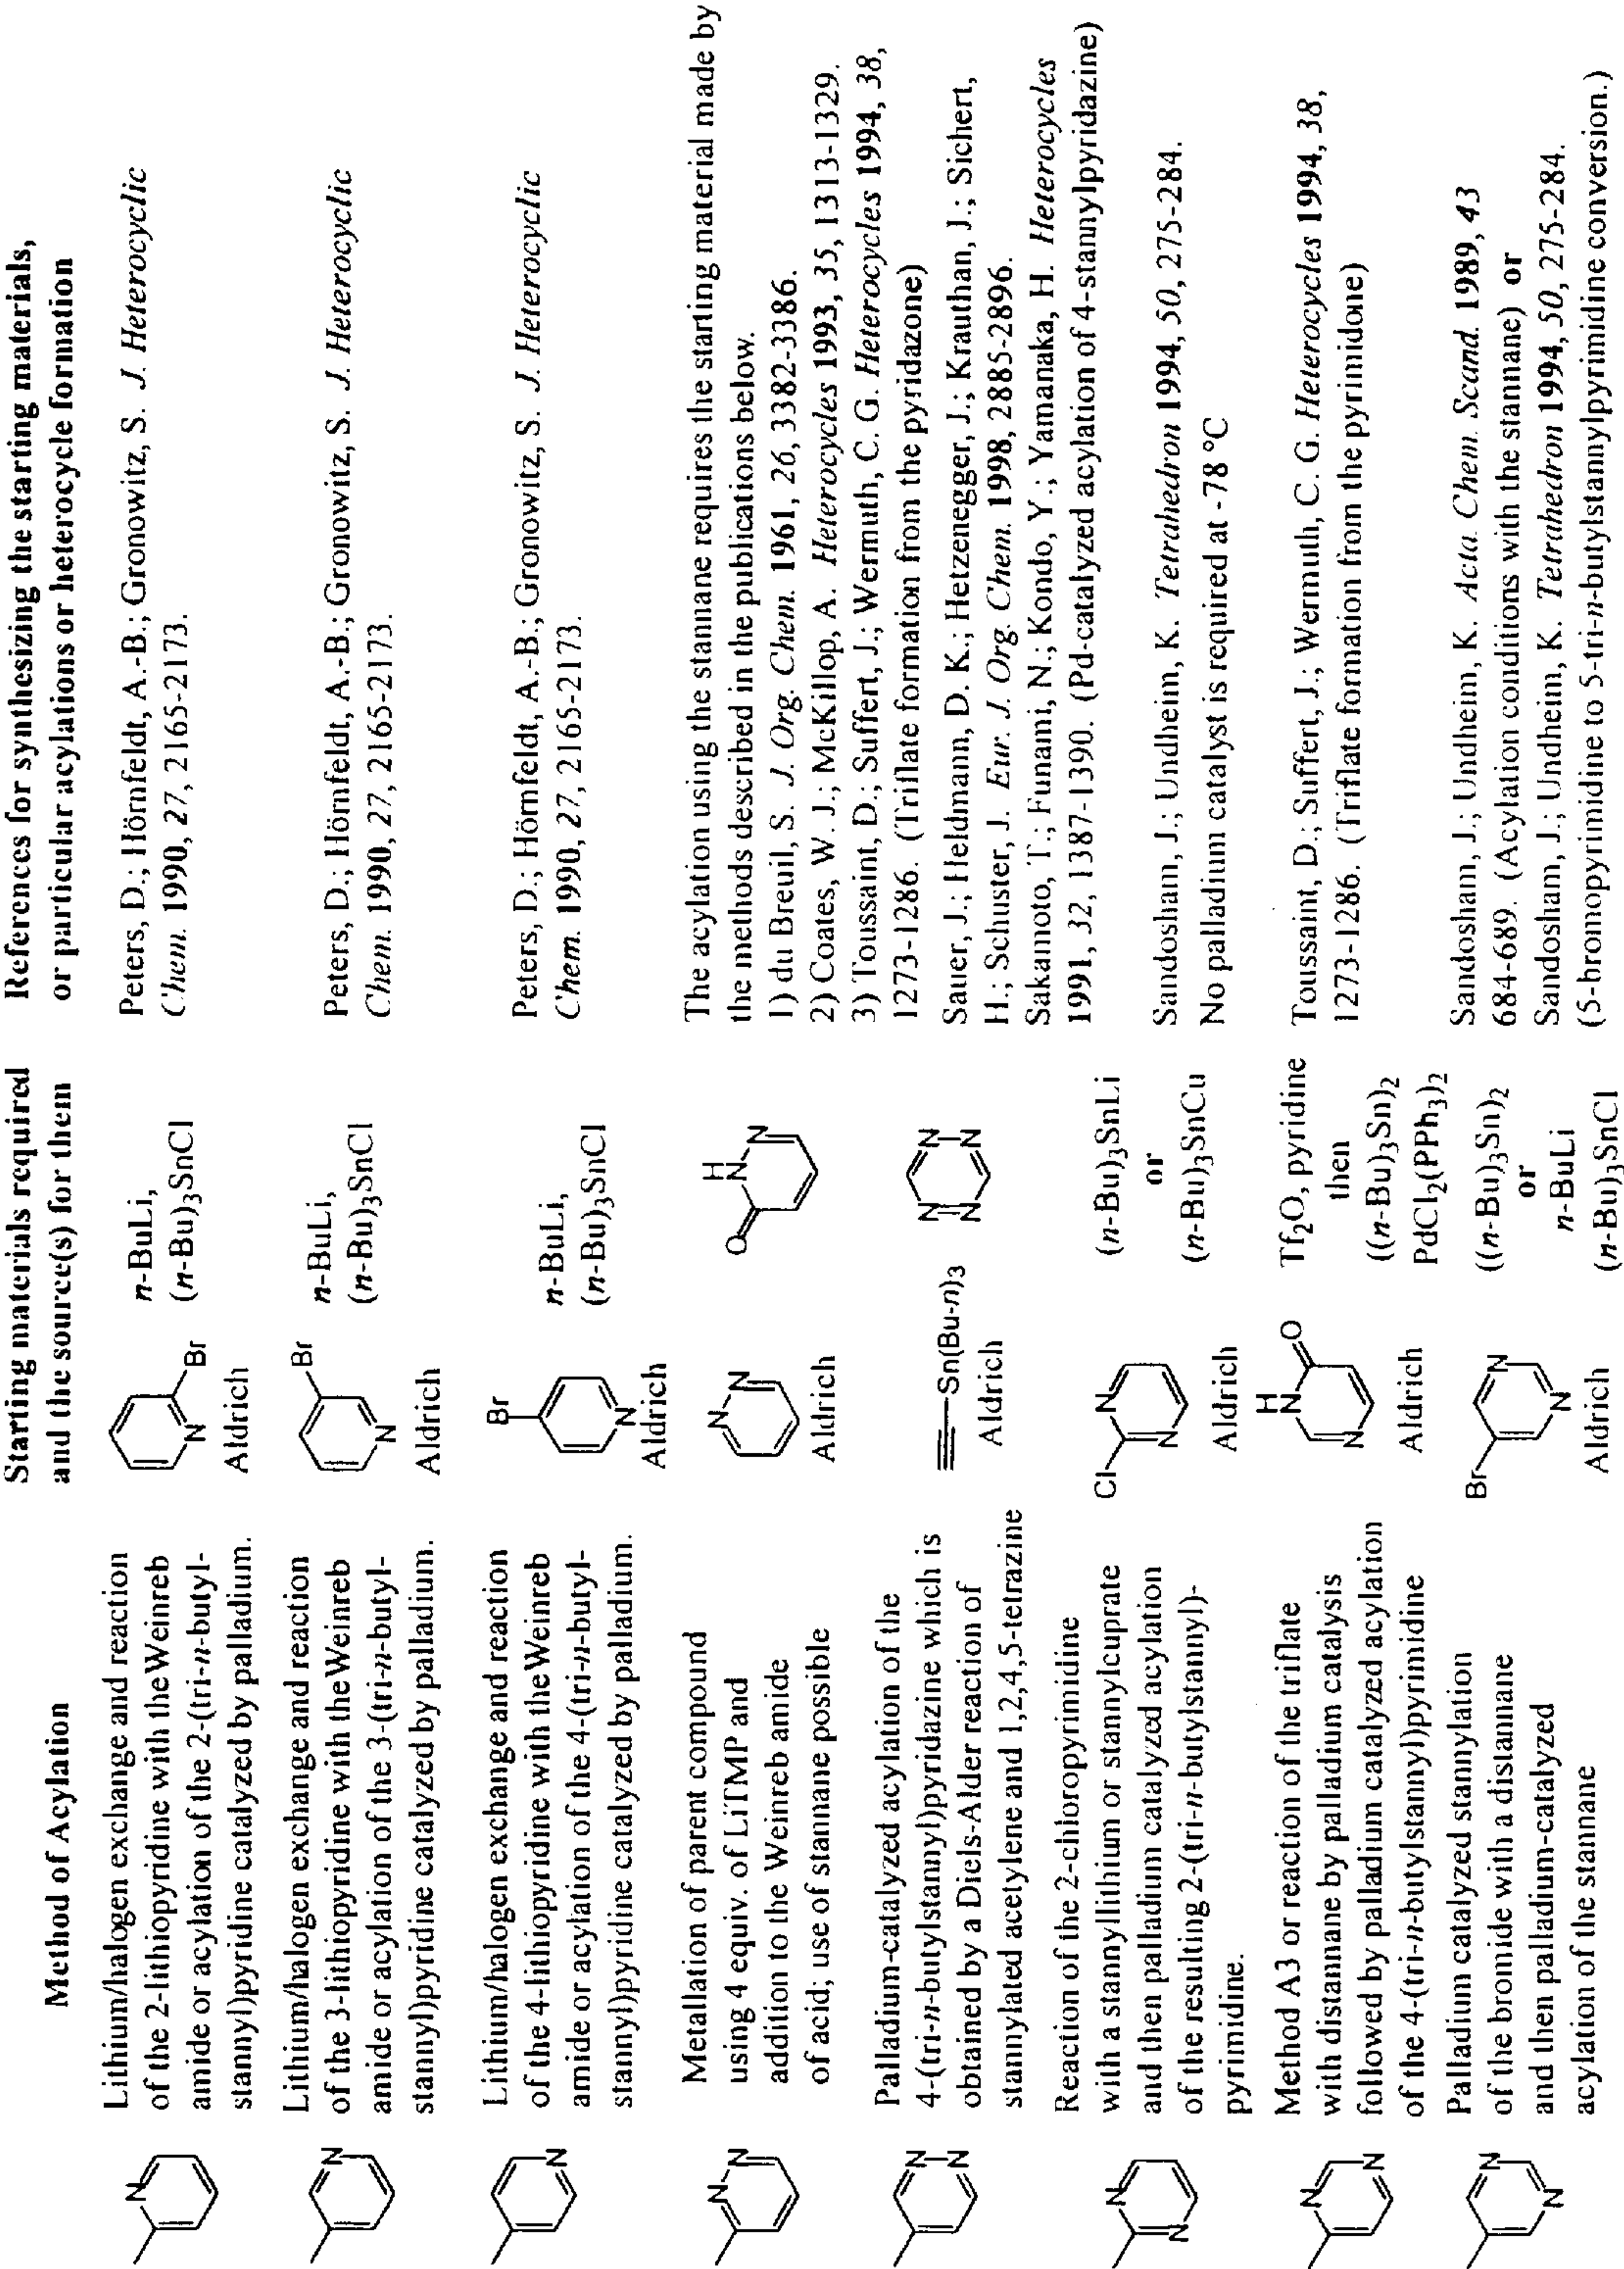 Method of Acylation
Starting materials required
and the source(s) for them
References for synthesizing the starting materials,
or particular acylations or heterocycle formation
N
Lithium/halogen exchange and reaction
of the 2-lithiopyridine with theWeinreb
amide or acylation of the 2-(tri-n-butyl-
stannyl)pyridine catalyzed by palladium.
N
Br
Aldrich
n-BuLi,
(n-Bu)3SnCl
Peters, D.; Hörnfeldt, A.-B.; Gronowitz, S. J. Heterocyclic
Chem. 1990, 27, 2165-2173.
N
Lithium/halogen exchange and reaction
of the 3-lithiopyridine with theWeinreb
amide or acylation of the 3-(tri-n-butyl-
stannyl)pyridine catalyzed by palladium.
Br
N
Aldrich
n-BuLi,
(n-Bu)3SnCl
Peters, D.; Hörnfeldt, A.-B.; Gronowitz, S. J. Heterocyclic
Chem. 1990, 27, 2165-2173.
N
Lithium/halogen exchange and reaction
of the 4-lithiopyridine with theWeinreb
amide or acylation of the 4-(tri-n-butyl-
stannyl)pyridine catalyzed by palladium.
Br
N
Aldrich
n-BuLi,
(n-Bu)3SnCl
Peters, D.; Hörnfeldt, A.-B.; Gronowitz, S. J. Heterocyclic
Chem. 1990, 27, 2165-2173.
N N
Metallation of parent compound
using 4 equiv. of LiTMP and
addition to the Weinreb amide
of acid; use of stannane possible
N N
Aldrich
O
H
N N
The acylation using the stannane requires the starting material made by
the methods described in the publications below.
1) du Breuil, S. J. Org. Chem. 1961, 26, 3382-3386.
2) Coates, W. J.; McKillop, A. Heterocycles 1993, 35, 1313-1329.
3) Toussaint, D.; Suffert, J.; Wermuth, C. G. Heterocycles 1994, 38,
1273-1286. (Triflate formation from the pyridazone)
N
N
Palladium-catalyzed acylation of the
4-(tri-n-butylstannyl)pyridazine which is
obtained by a Diels-Alder reaction of
stannylated acetylene and 1,2,4,5-tetrazine
Sn(Bu-n)3
Aldrich
N N
N N
Sauer, J.; Heldmann, D. K.; Hetzenegger, J.; Krauthan, J.; Sichert,
H.; Schuster, J. Eur. J. Org. Chem. 1998, 2885-2896.
Sakamoto, T.; Funami, N.; Kondo, Y.; Yamanaka, H. Heterocycles
1991, 32, 1387-1390. (Pd-catalyzed acylation of 4-stannylpyridazine)
N
N
Reaction of the 2-chloropyrimidine
with a stannyllithium or stannylcuprate
and then palladium catalyzed acylation
of the resulting 2-(tri-n-butylstannyl)-
pyrimidine.
Cl
N
N
Aldrich
(n-Bu)3SnLi
or
(n-Bu)3SnCu
Sandosham, J.; Undheim, K. Tetrahedron 1994, 50, 275-284.
No palladium catalyst is required at -78 °C
N
N
Method A3 or reaction of the triflate
with distannane by palladium catalysis
followed by palladium catalyzed acylation
of the 4-(tri-n-butylstannyl)pyrimidine
H
N
O
N
Aldrich
Tf2O, pyridine
then
((n-Bu)3Sn)2
PdCl2(PPh3)2
Toussaint, D.; Suffert, J.; Wermuth, C. G. Heterocycles 1994, 38,
1273-1286. (Triflate formation from the pyrimidone)
N
N
Palladium catalyzed stannylation
of the bromide with a distannane
and then palladium-catalyzed
acylation of the stannane
Br
N
N
Aldrich
((n-Bu)3Sn)2
or
n-BuLi
(n-Bu)3SnCl
Sandosham, J.; Undheim, K. Acta Chem. Scand. 1989, 43
684-689. (Acylation conditions with the stannane) or
Sandosham, J.; Undheim, K. Tetrahedron 1994, 50, 275-284.
(5-bromopyrimidine to 5-tri-n-butylstannylpyrimidine conversion.)